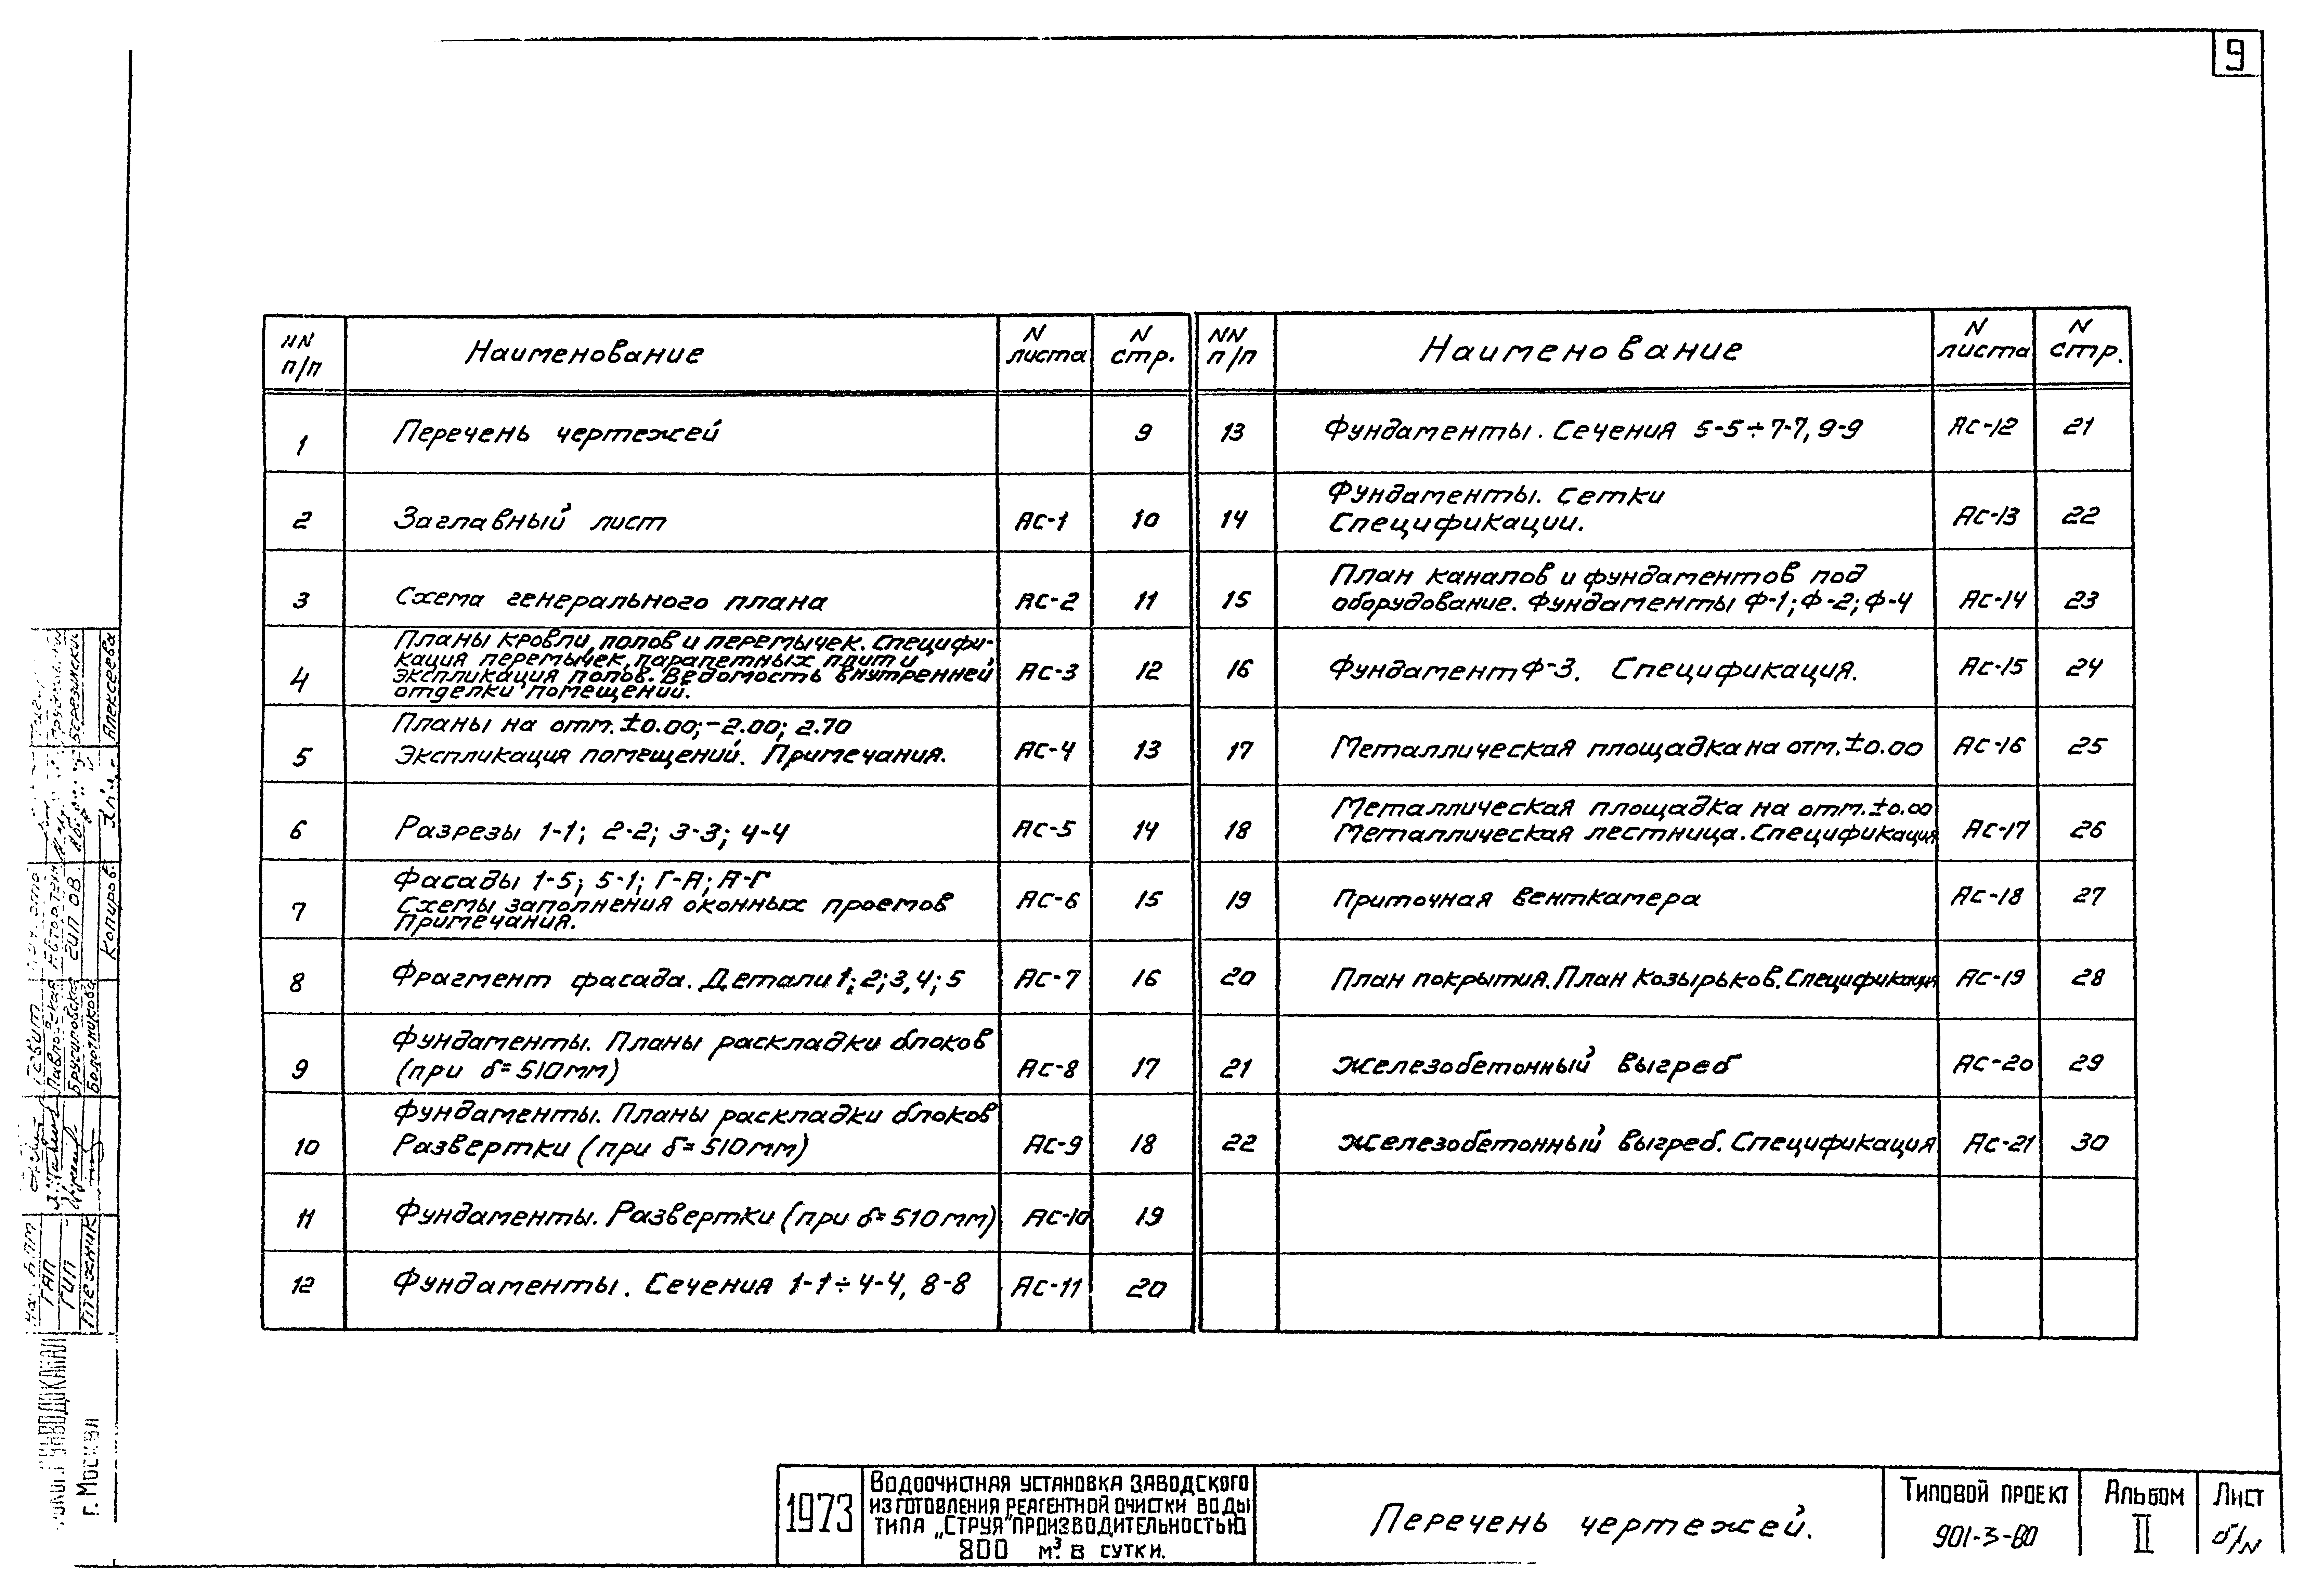 9
NN п/п Наименование N листа N стр.
1 Перечень чертежей 9
2 Заглавный лист АС-1 10
3 Схема генерального плана АС-2 11
4 Планы кровли, полов и перемычек. Специфи-
кация перемычек, парапетных плит и
экспликация полов. Ведомость внутренней
отделки помещений. АС-3 12
5 Планы на отм. ±0.00; -2.00; 2.70
Экспликация помещений. Примечания. АС-4 13
6 Разрезы 1-1; 2-2; 3-3; 4-4 АС-5 14
7 Фасады 1-5; 5-1; Г-А; А-Г
Схемы заполнения оконных проемов
Примечания. АС-6 15
8 Фрагмент фасада. Детали 1; 2; 3, 4; 5 АС-7 16
9 Фундаменты. Планы раскладки блоков
(при δ=510мм) АС-8 17
10 Фундаменты. Планы раскладки блоков
Развертки (при δ=510мм) АС-9 18
11 Фундаменты. Развертки (при δ=510мм) АС-10 19
12 Фундаменты. Сечения 1-1÷4-4, 8-8 АС-11 20
NN п/п Наименование N листа N стр.
13 Фундаменты. Сечения 5-5÷7-7, 9-9 АС-12 21
14 Фундаменты. Сетки
Спецификации. АС-13 22
15 План каналов и фундаментов под
оборудование. Фундаменты Ф-1; Ф-2; Ф-4 АС-14 23
16 Фундамент Ф-3. Спецификация. АС-15 24
17 Металлическая площадка на отм. ±0.00 АС-16 25
18 Металлическая площадка на отм. ±0.00
Металлическая лестница. Спецификация АС-17 26
19 Приточная венткамера АС-18 27
20 План покрытия. План козырьков. Спецификация АС-19 28
21 Железобетонный выгреб АС-20 29
22 Железобетонный выгреб. Спецификация АС-21 30
Алексеева
Копиров.
ГИП ОВ
Павловская
Брусиловская
Болотникова
ГАП
ГИП
г. Москва
1973
Водоочистная установка заводского
изготовления реагентной очистки воды
типа „Струя" производительностью
800 м³ в сутки.
Перечень чертежей.
Типовой проект
901-3-80
Альбом
II
Лист
б/н